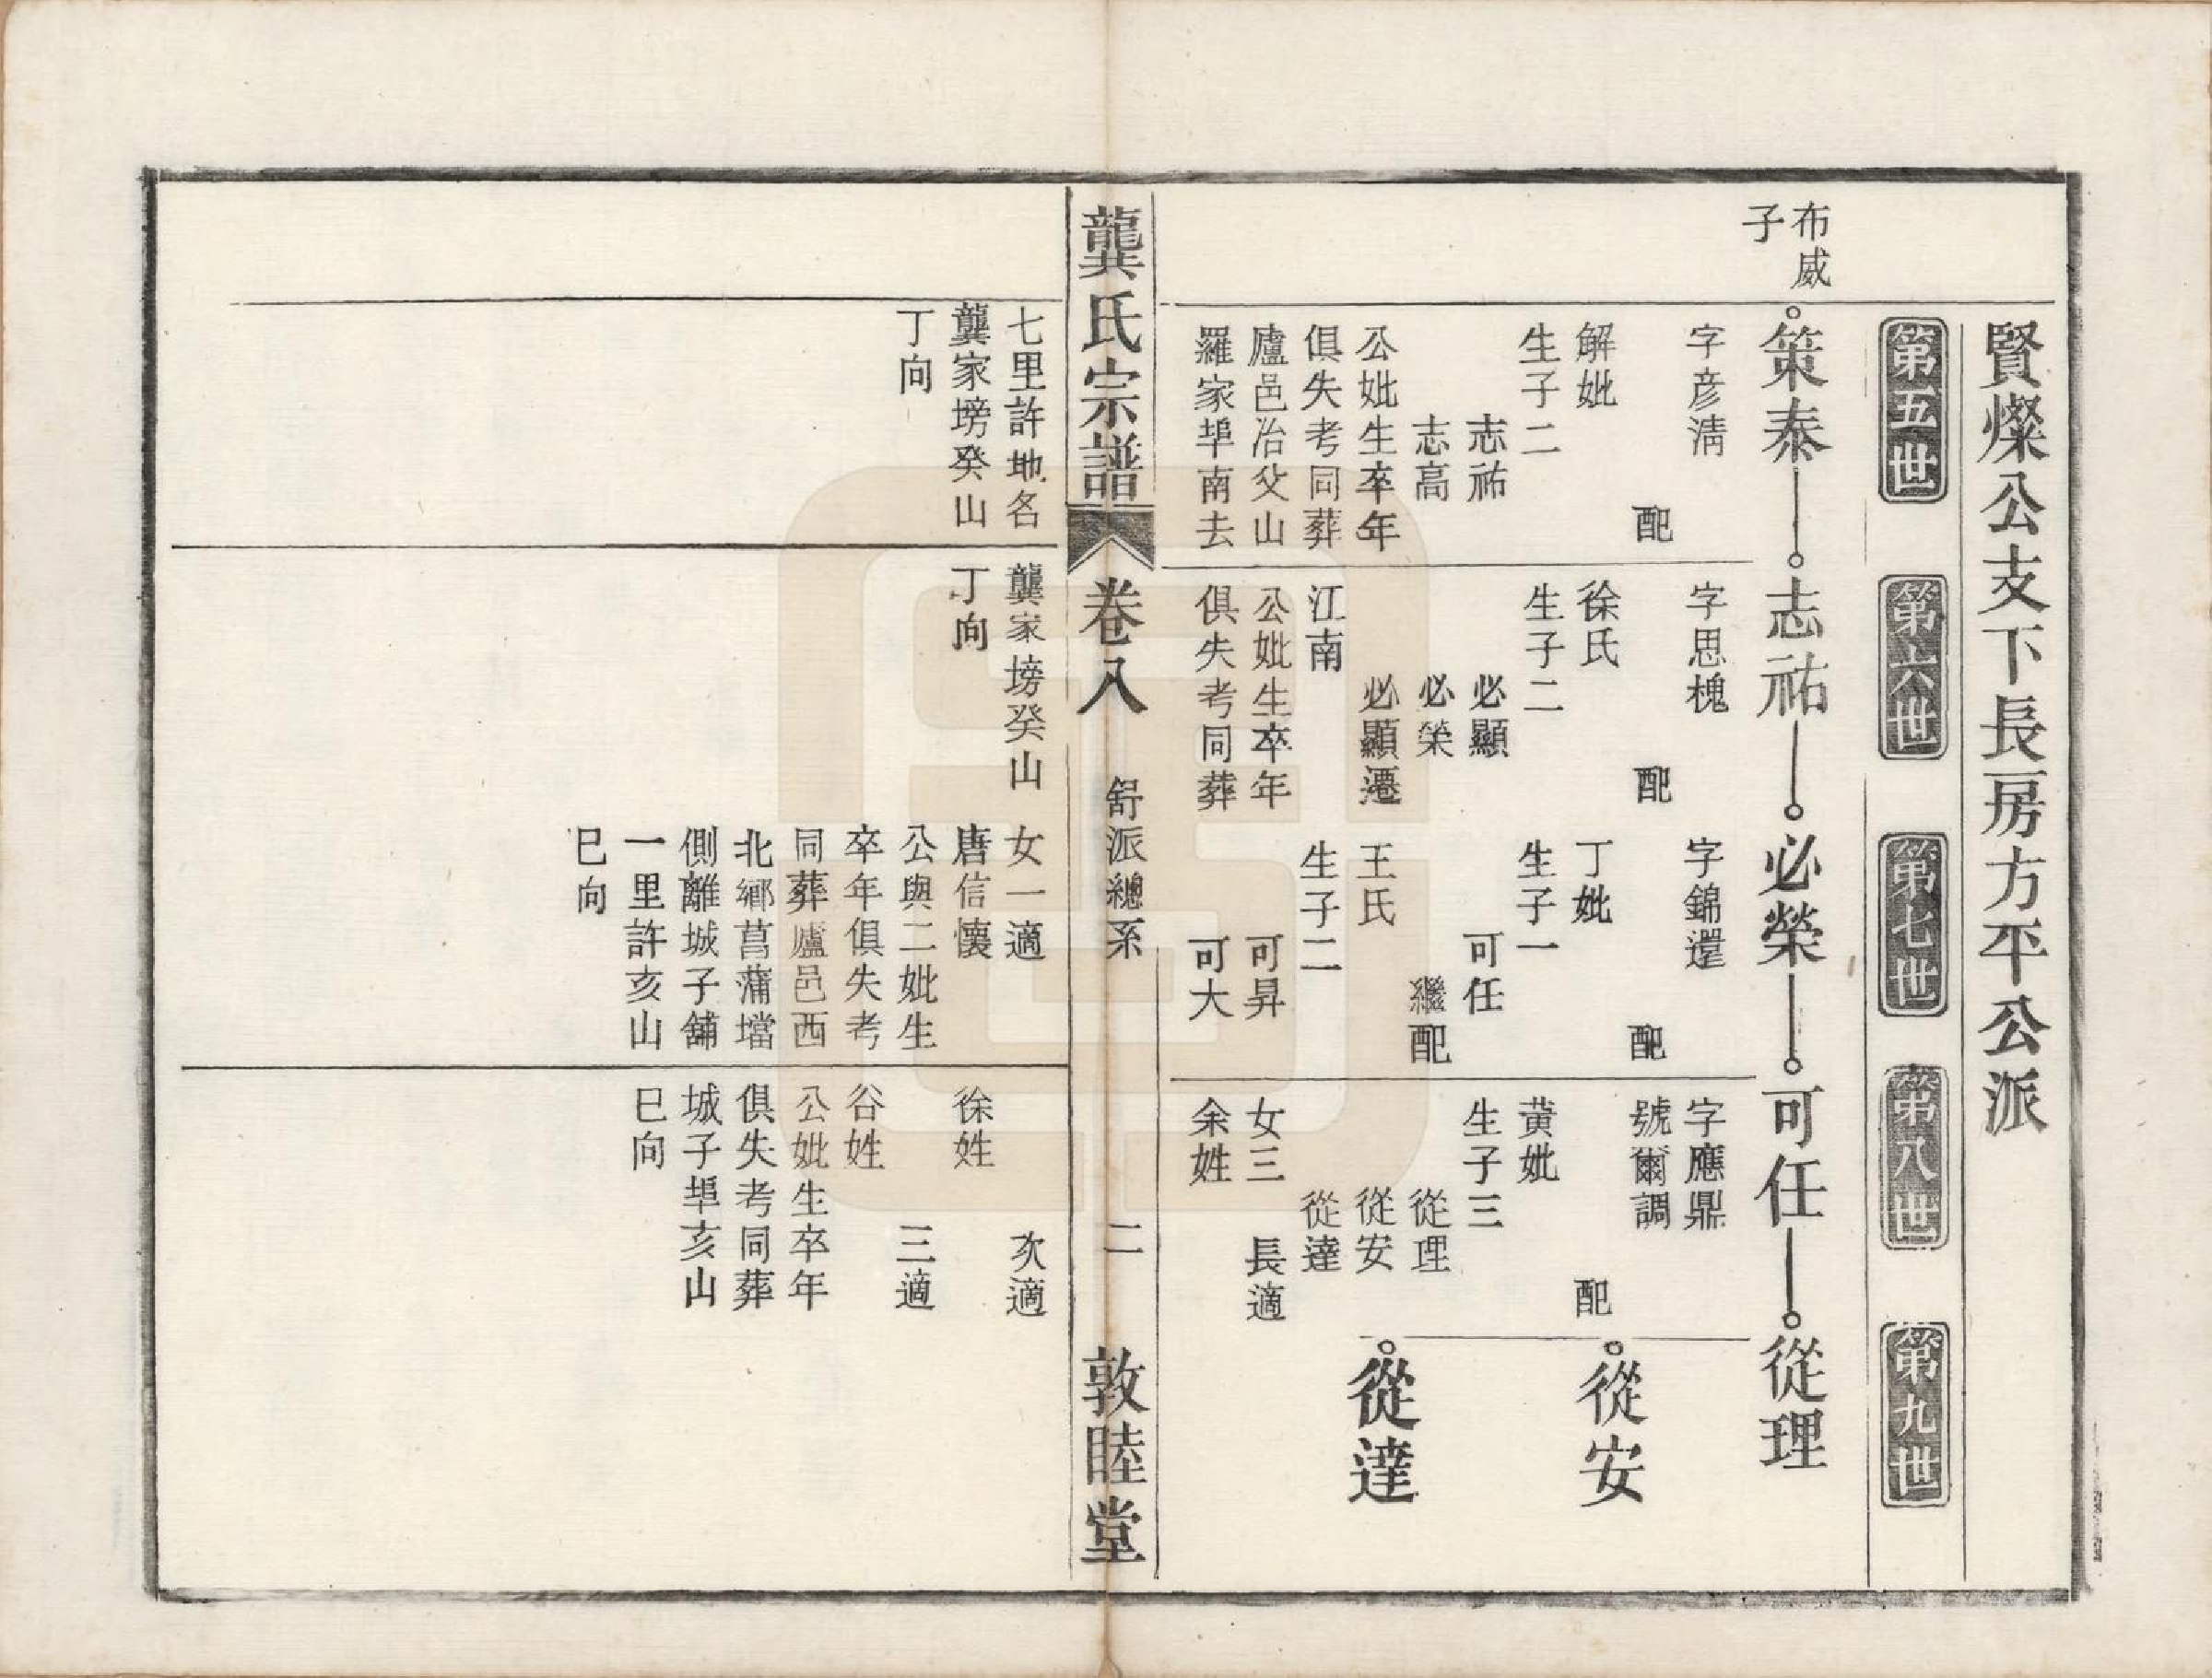 賢燦公支下長房方平公派
第五世
第六世
第七世
第八世
第九世
布威
子
策泰
志祐
必榮
可任
從理
字彥淸
配
解妣
生子二
志祐
志高
公妣生卒年
俱失考同葬
廬邑冶父山
羅家埠南去
字思槐
配
徐氏
生子二
必顯
必榮
必顯遷
江南
公妣生卒年
俱失考同葬
字錦還
配
丁妣
生子一
可任
繼配
王氏
生子二
可昇
可大
字應鼎
號爾調
配
黄妣
生子三
從理
從安
從達
女三
長適
余姓
從安
從達
龔氏宗譜
卷八
舒派總系
二
敦睦堂
七里許地名
龔家塝癸山
丁向
龔家塝癸山
丁向
女一適
唐信懷
公與二妣生
卒年俱失考
同葬廬邑西
北鄉菖蒲壋
側離城子舖
一里許亥山
巳向
次適
徐姓
三適
谷姓
公妣生卒年
俱失考同葬
城子埠亥山
巳向